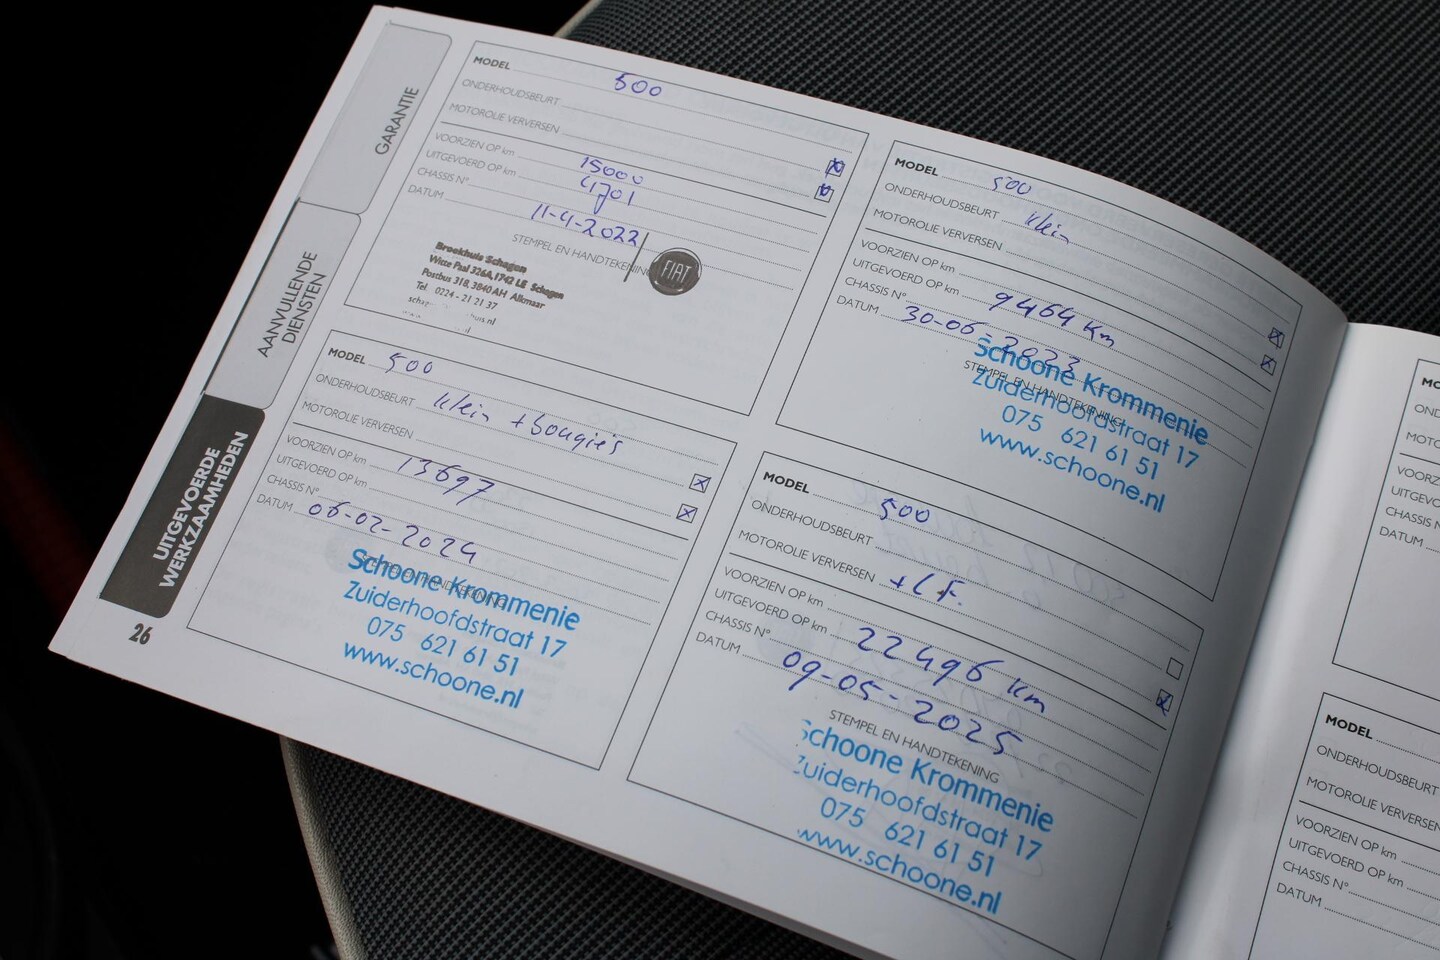 GARANTIE
AANVULLENDE
DIENSTEN
UITGEVOERDE
WERKZAAMHEDEN
26
MODEL 500
ONDERHOUDSBEURT
MOTOROLIE VERVERSEN
VOORZIEN OP km 15000
UITGEVOERD OP km 4701
CHASSIS N°
DATUM 11-4-2022
STEMPEL EN HANDTEKENING
FIAT
Broekhuis Schagen
Witte Paal 326A, 1742 LE Schagen
Postbus 318, 3840 AH Alkmaar
Tel 0224 - 21 21 37
MODEL 500
ONDERHOUDSBEURT klein + bougie's
MOTOROLIE VERVERSEN
VOORZIEN OP km
UITGEVOERD OP km 13697
CHASSIS N°
DATUM 06-02-2024
Schoone Krommenie
Zuiderhoofdstraat 17
075 621 61 51
www.schoone.nl
MODEL 500
ONDERHOUDSBEURT klein
MOTOROLIE VERVERSEN
VOORZIEN OP km
UITGEVOERD OP km 9464 km
CHASSIS N°
DATUM 30-06-2023
STEMPEL EN HANDTEKENING
Schoone Krommenie
Zuiderhoofdstraat 17
075 621 61 51
www.schoone.nl
MODEL 500
ONDERHOUDSBEURT
MOTOROLIE VERVERSEN
VOORZIEN OP km
UITGEVOERD OP km 22496 km
CHASSIS N°
DATUM 09-05-2025
STEMPEL EN HANDTEKENING
Schoone Krommenie
Zuiderhoofdstraat 17
075 621 61 51
www.schoone.nl
VOORZIEN OP
CHASSIS
DATUM
MODEL
ONDERHOUDSBEURT
MOTOROLIE VERVERSEN
VOORZIEN OP km
UITGEVOERD OP km
CHASSIS N°
DATUM